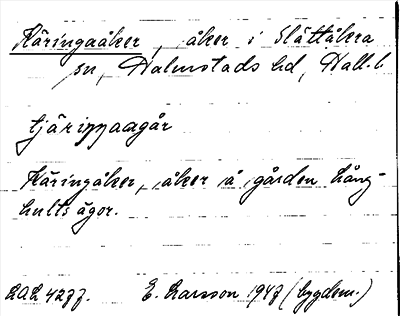 Käringaåker, åker i Slättåkra
sn, Halmstads hd, Hall. l.
tjäriŋaagår
Käringåker, åker å gården Lång-
hults ägor.
LAL 4277. E. Larsson 1947 (bygdem.)